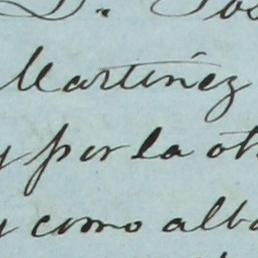 D.ⁿ Jos
Martinez
y por la ot
y como alba